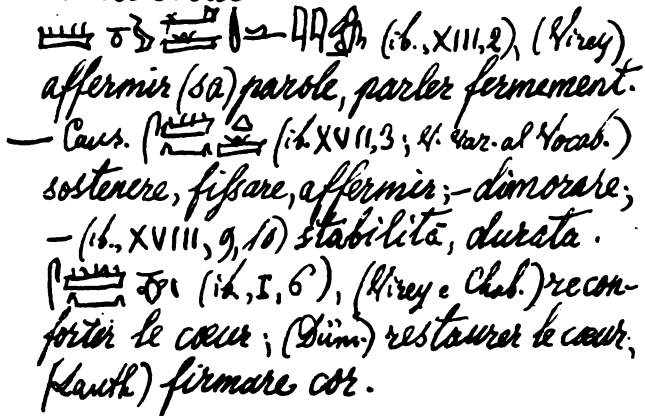 (ib., XIII, 2), (Virey)
affermir (sa) parole, parler fermement.
— Caus. (ib. XVII, 3; V. Var. al Vocab.)
sostenere, fissare, affermir; – dimorare;
– (ib., XVIII, 9, 10) stabilità, durata.
(ib., I, 6), (Virey e Chab.) recon-
forter le cœur; (Düm.) restaurer le cœur;
(Lauth) firmare cor.